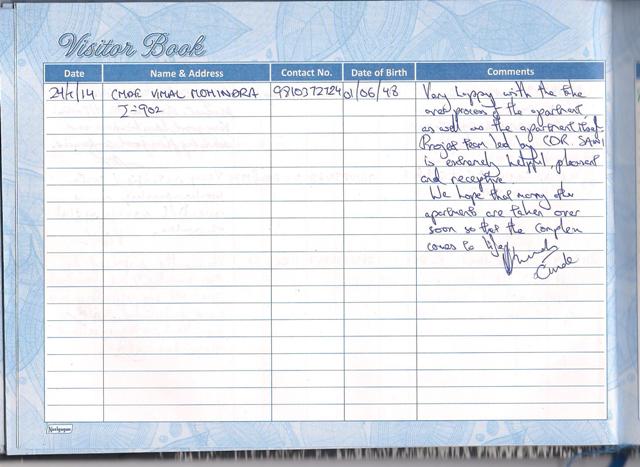 Visitor Book
Date Name & Address Contact No. Date of Birth Comments
24/5/14 CMDE VIMAL MOHINDRA 9810372724 01/06/48 Very happy with the take
J-902 over process of the apartment,
as well as the apartment itself.
Project team led by CDR. SAWI
is extremely helpful, pleasant
and receptive.
We hope that many other
apartments are taken over
soon so that the complex
comes to life.
Cmde
Navlgagan